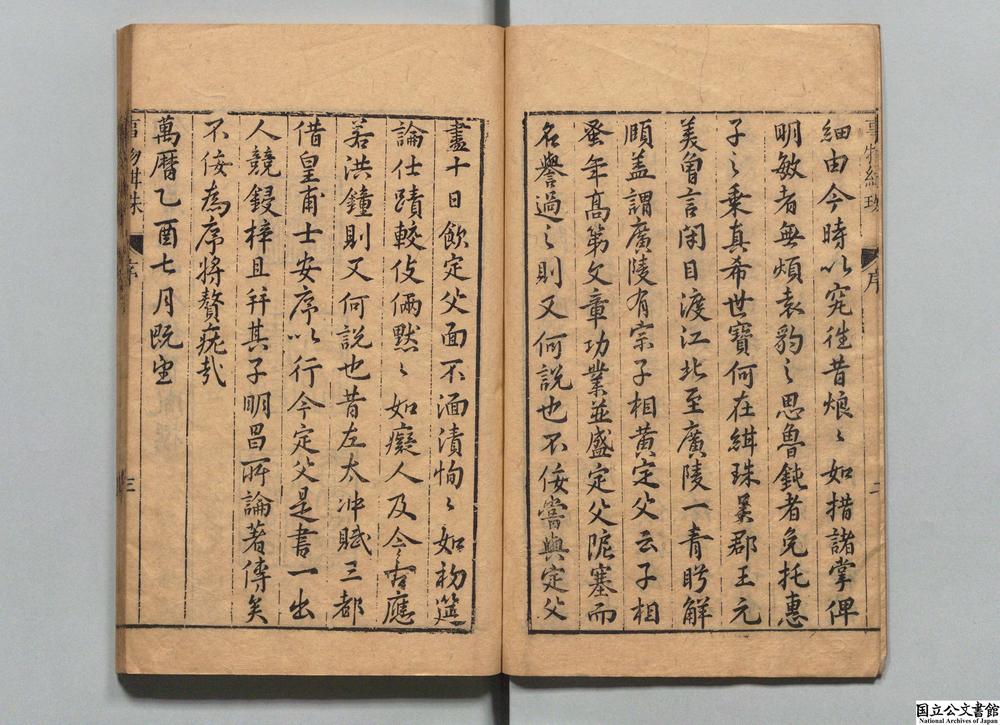 細由今時以究徃昔烺〻如措諸掌俾
明敏者無煩袁豹之思魯鈍者免托惠
子之乗真希世寶何在緝珠吴郡王元
美曽言閑日渡江北至廣陵一青眄解
頤盖謂廣陵有宗子相黄定父云子相
蚤年髙第文章功業並盛定父阨塞而
名譽過之則又何説也不佞嘗與定父
序
二
盡十日飲定父面不湎漬恂〻如初筵
論仕蹟較伎倆默〻如癡人及今有應
若洪鐘則又何説也昔左太冲賦三都
借皇甫士安序以行今定父是書一出
人競鋟梓且并其子明昌所論著傳矣
不佞為序將贅疣㢤
萬曆乙酉七月既望
事物緝珠
序
三
国立公文書館
National Archives of Japan